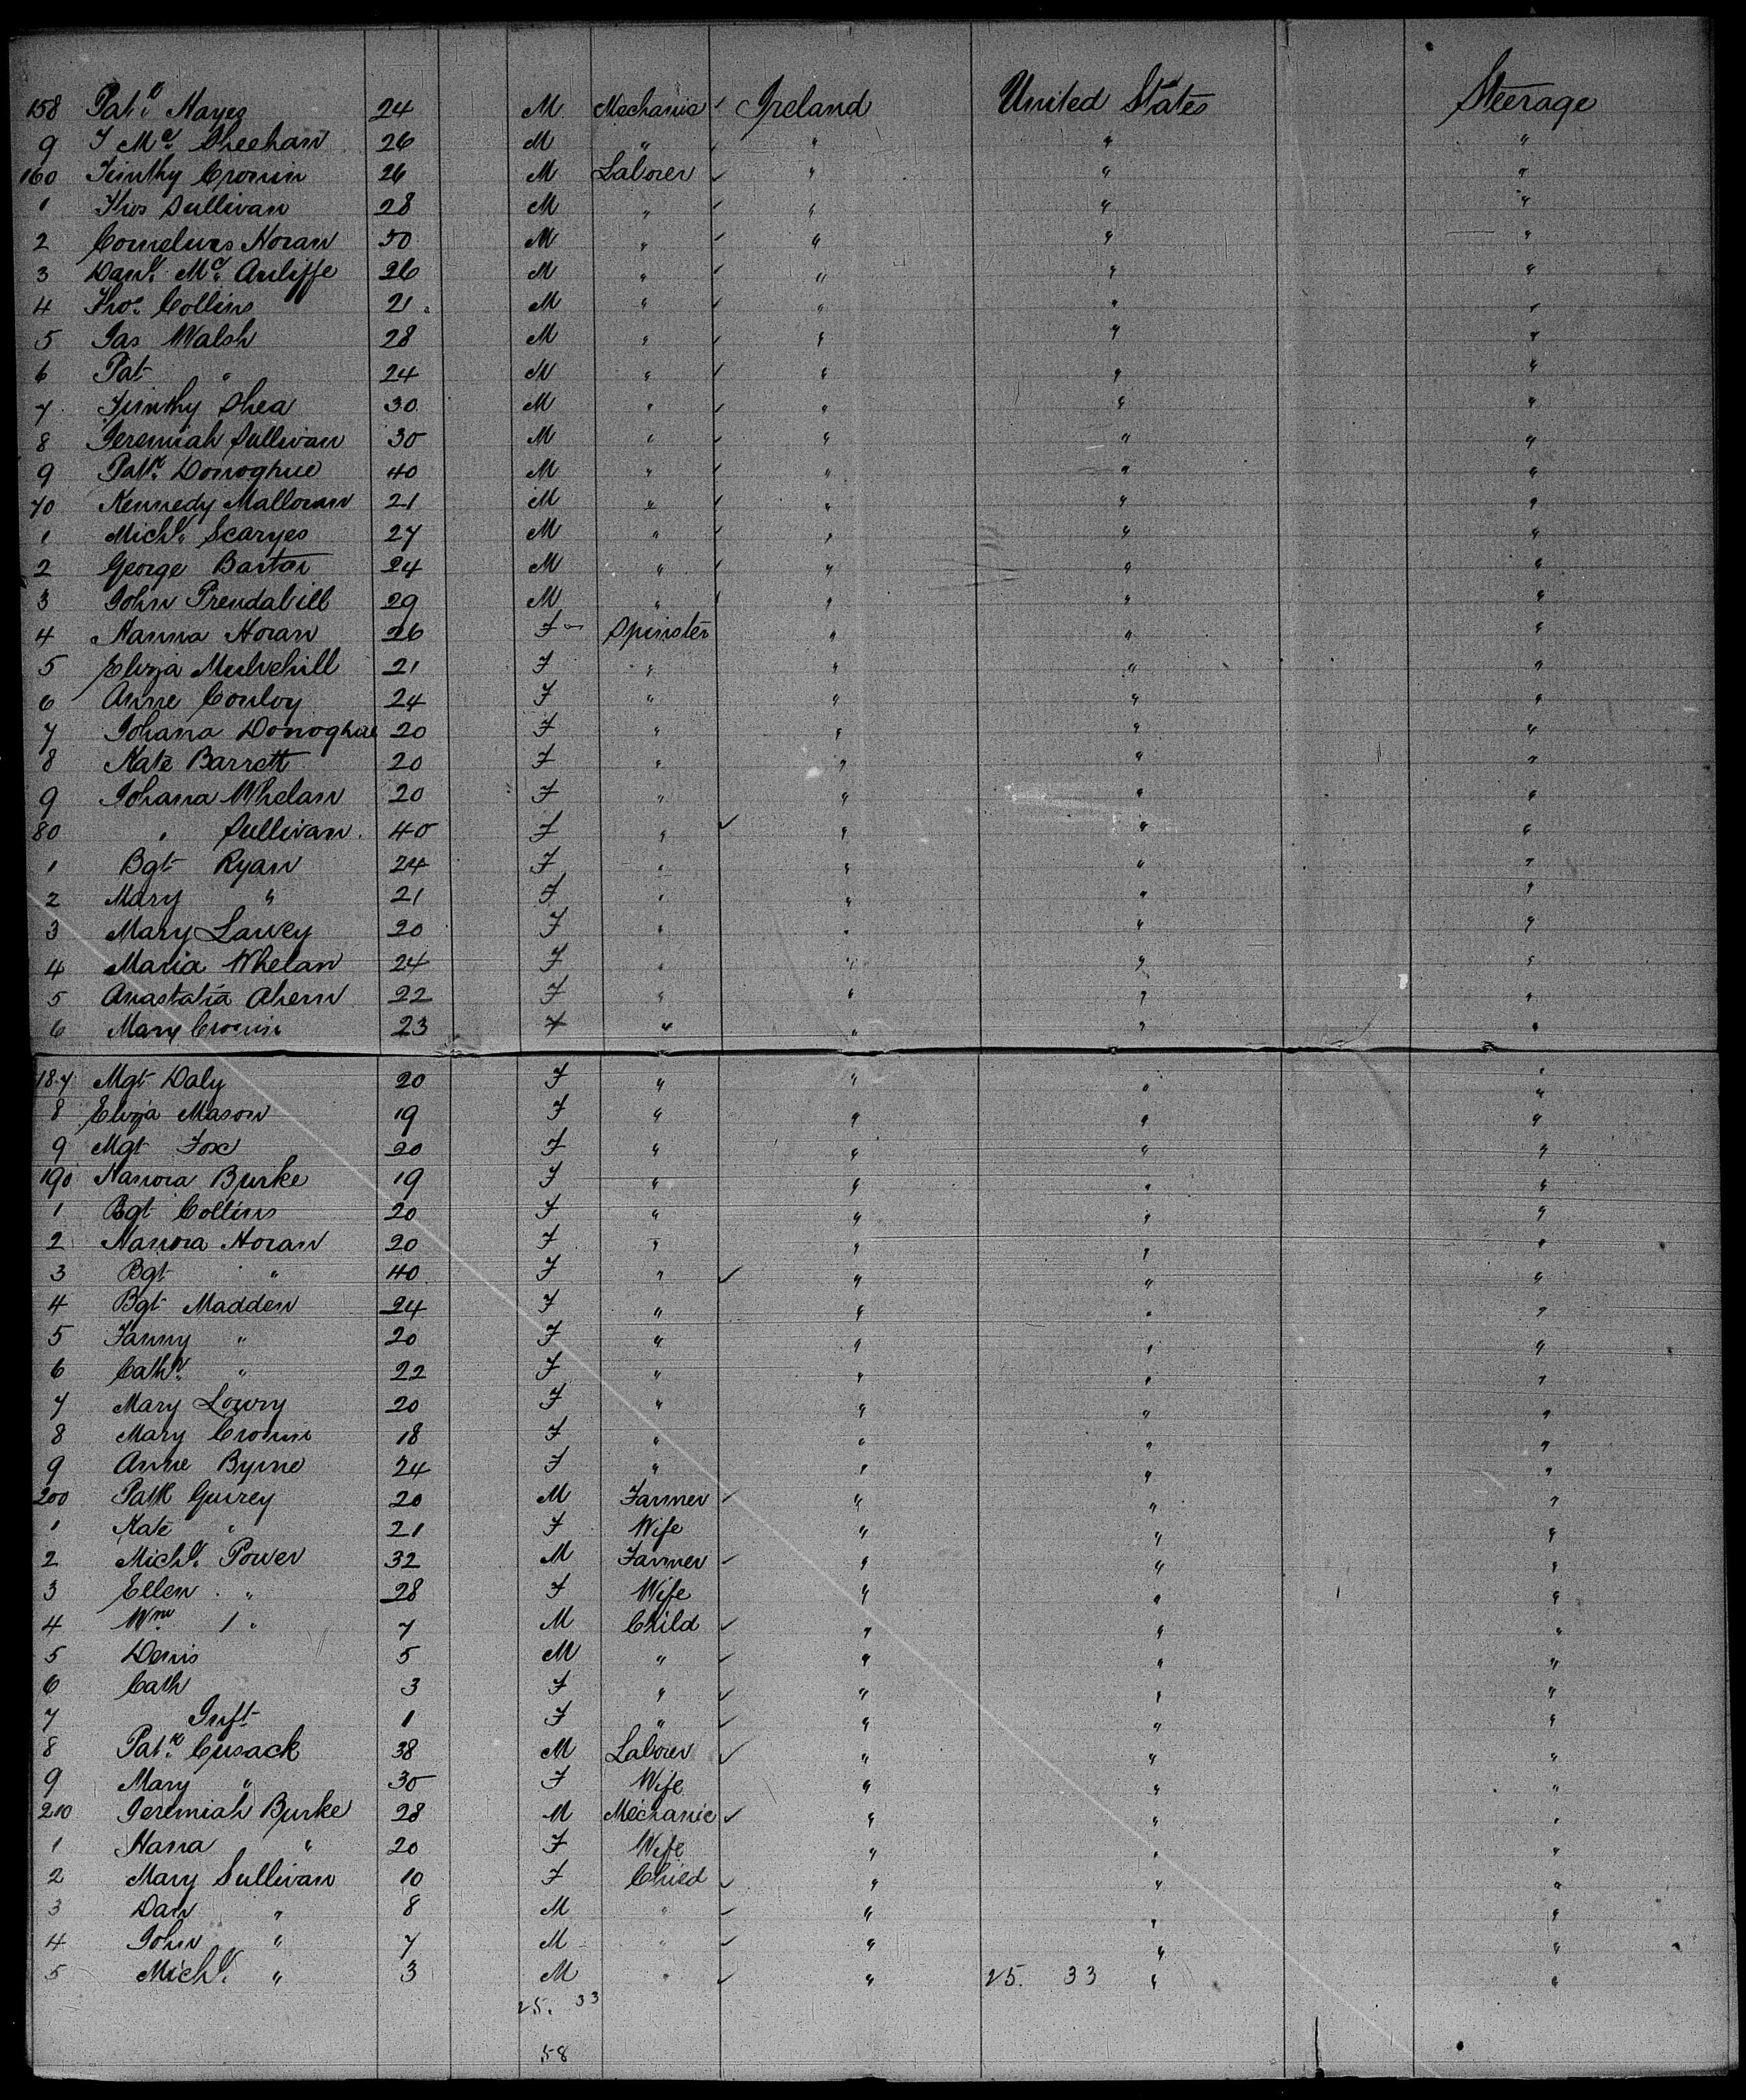 158 Pat.k Hayes 24 M Mechanic Ireland United States Steerage
9 J Mc Sheehan 26 M " " " "
160 Timthy Cronin 26 M Laborer " " "
1 Thos Sullivan 28 M " " " "
2 Cornelius Horan 50 M " " " "
3 Danl. Mc. Auliffe 26 M " " " "
4 Thos. Collins 21 M " " " "
5 Jas Walsh 28 M " " " "
6 Pat " 24 M " " " "
7 Timthy Shea 30 M " " " "
8 Jeremiah Sullivan 30 M " " " "
9 Patk. Donoghue 40 M " " " "
70 Kennedy Malloran 21 M " " " "
1 Michl. Scaryes 27 M " " " "
2 George Bartar 24 M " " " "
3 John Prendabill 29 M " " " "
4 Hanna Horan 26 F Spinster " " "
5 Eliza Mulvehill 21 F " " " "
6 Anne Conloy 24 F " " " "
7 Johana Donoghue 20 F " " " "
8 Kate Barrett 20 F " " " "
9 Johana Whelan 20 F " " " "
80 " Sullivan 40 F " " " "
1 Bgt Ryan 24 F " " " "
2 Mary " 21 F " " " "
3 Mary Lawey 20 F " " " "
4 Maria Whelan 24 F " " " "
5 Anastatia Ahern 22 F " " " "
6 Mary Cronin 23 F " " " "
187 Mgt Daly 20 F " " " "
8 Eliza Mason 19 F " " " "
9 Mgt Fox 20 F " " " "
190 Hanora Burke 19 F " " " "
1 Bgt Collins 20 F " " " "
2 Hanora Horan 20 F " " " "
3 Bgt " 40 F " " " "
4 Bgt Madden 24 F " " " "
5 Fanny " 20 F " " " "
6 Cath. " 22 F " " " "
7 Mary Lowry 20 F " " " "
8 Mary Cronin 18 F " " " "
9 Anne Byrne 24 F " " " "
200 Patk Guirey 20 M Farmer " " "
1 Kate " 21 F Wife " " "
2 Michl. Power 32 M Farmer " " "
3 Ellen " 28 F Wife " " "
4 Wm " 7 M Child " " "
5 Denis 5 M " " " "
6 Cath 3 F " " " "
7 Inft 1 F " " " "
8 Patk. Cusack 38 M Laborer " " "
9 Mary " 30 F Wife " " "
210 Jeremiah Burke 28 M Mechanic " " "
1 Hana " 20 F Wife " " "
2 Mary Sullivan 10 F Child " " "
3 Dan " 8 M " " " "
4 John " 7 M " " " "
5 Michl. " 3 M " " 25. 33 " "
25. 33
58